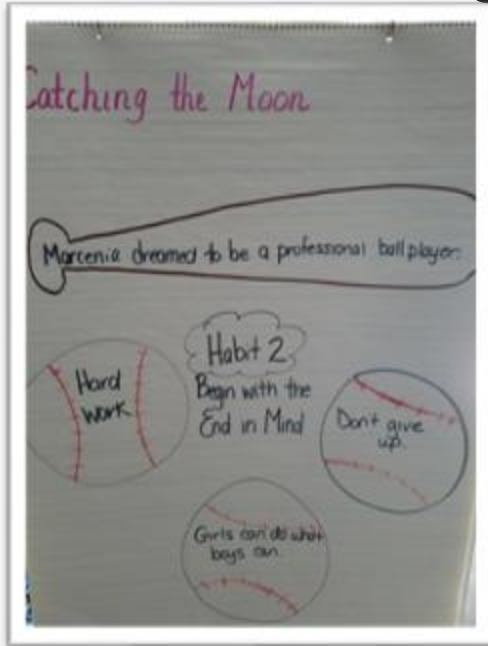 Catching the Moon
Marcenia dreamed to be a professional ball player.
Habit 2
Begin with the
End in Mind
Hard
work
Don't give
up.
Girls can do what
boys can.